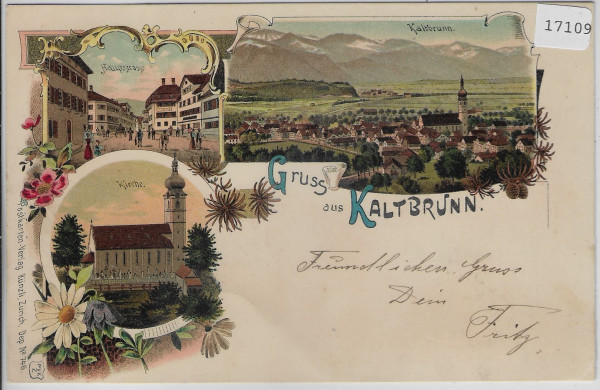 17109
Kaltbrunn.
Hauptstrasse
Kirche.
Gruss
aus KALTBRUNN.
Freundlichen Gruss
Dein
Fritz.
Postkarten-Verlag Künzli, Zürich, Dep. № 746.